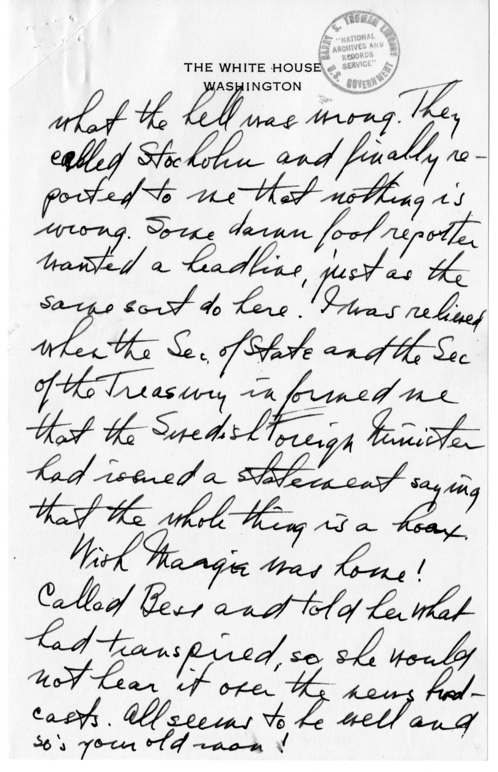 HARRY S. TRUMAN LIBRARY
"NATIONAL
ARCHIVES AND
RECORDS
SERVICE"
U.S. GOVERNMENT
THE WHITE HOUSE
WASHINGTON
what the hell was wrong. They
called Stocholm and finally re-
ported to me that nothing is
wrong. Some damn fool reporter
wanted a headline, just as the
same sort do here. I was relieved
when the Sec. of State and the Sec
of the Treasury informed me
that the Swedish Foreign Minister
had issued a statement saying
that the whole thing is a hoax.
Wish Margie was home!
Called Bess and told her what
had transpired, so she would
not hear it over the news
casts. All seems to be well and
so's your old man!